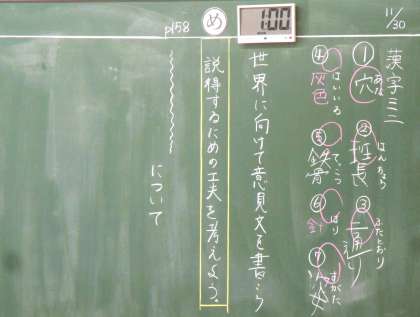 11/30
漢字ミニ
①穴 あな
②班長 はんちょう
③二通り ふたとおり
④灰色 はいいろ
⑤鉄骨 てっこつ
⑥針 はり
⑦姿 すがた
世界に向けて意見文を書こう
1:00
め
説得するための工夫を考えよう。
p158
について